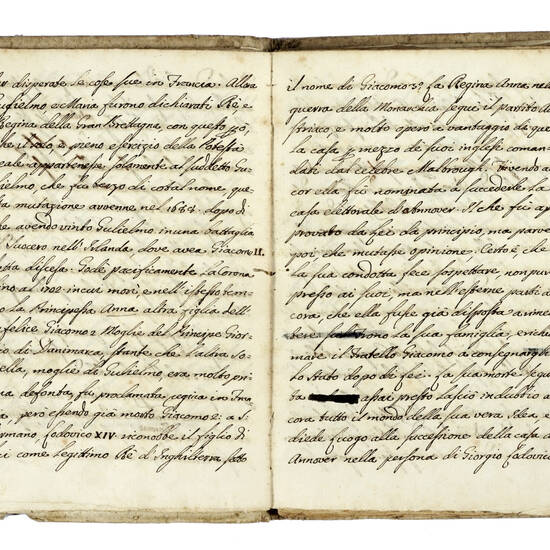 disperate le cose sue in Francia. Allora
Guglielmo e Maria furono dichiarati Re e
Regina della Gran Brettagna, con questo però,
che il solo, e pieno esercizio della Potestà
reale appartenesse solamente al suddetto Gu-
glielmo, che fu terzo di cotal nome, que-
sta mutazione avvenne nel 1688. dopo di
che avendo vinto Guglielmo in una battaglia
Suocero nell'Irlanda dove avea Giacomo II.
fatta discesa. Godè pacificamente la Corona
fino al 1702 in cui morì, e nell'istesso tem-
po la Principessa Anna altra figlia dell'
infelice Giacomo 2. Moglie del Principe Gior-
gio di Danimarca, stante che l'altra So-
rella, moglie di Guglielmo, era molto pri-
ma defonta, fu proclamata regina
però essendo già morto Giacomo 2. a S.
Germano Lodovico XIV. riconobbe il figlio di
lui come legittimo Re d'Inghilterra sotto
il nome di Giacomo 3. La Regina Anna nella
guerra della Monarchia seguì il partito
e molto operò a vantaggio di
la casa per mezzo de suoi inglesi coman-
dati dal celebre Malborough. Vivendo an-
cor ella fu nominata a succedere la
casa elettorale d'Annover. Il che fu ap-
provato da lei da principio, ma par ve
poi, che mutasse opinione. Certo è che
la sua condotta fece sospettare, non pur
presso ai suoi, ma nell'esterne parti an-
cora, che ella fusse già disposta a
la sua famiglia, e richia-
mare il Fratello Giacomo a consegnar
lo stato dopo di lei. La sua morte segui-
ta assai presto lasciò in dubbio an-
cora tutto il mondo della sua vera idea, e
diede luogo alla successione della casa d'
Annover nella persona di Giorgio Lodovico